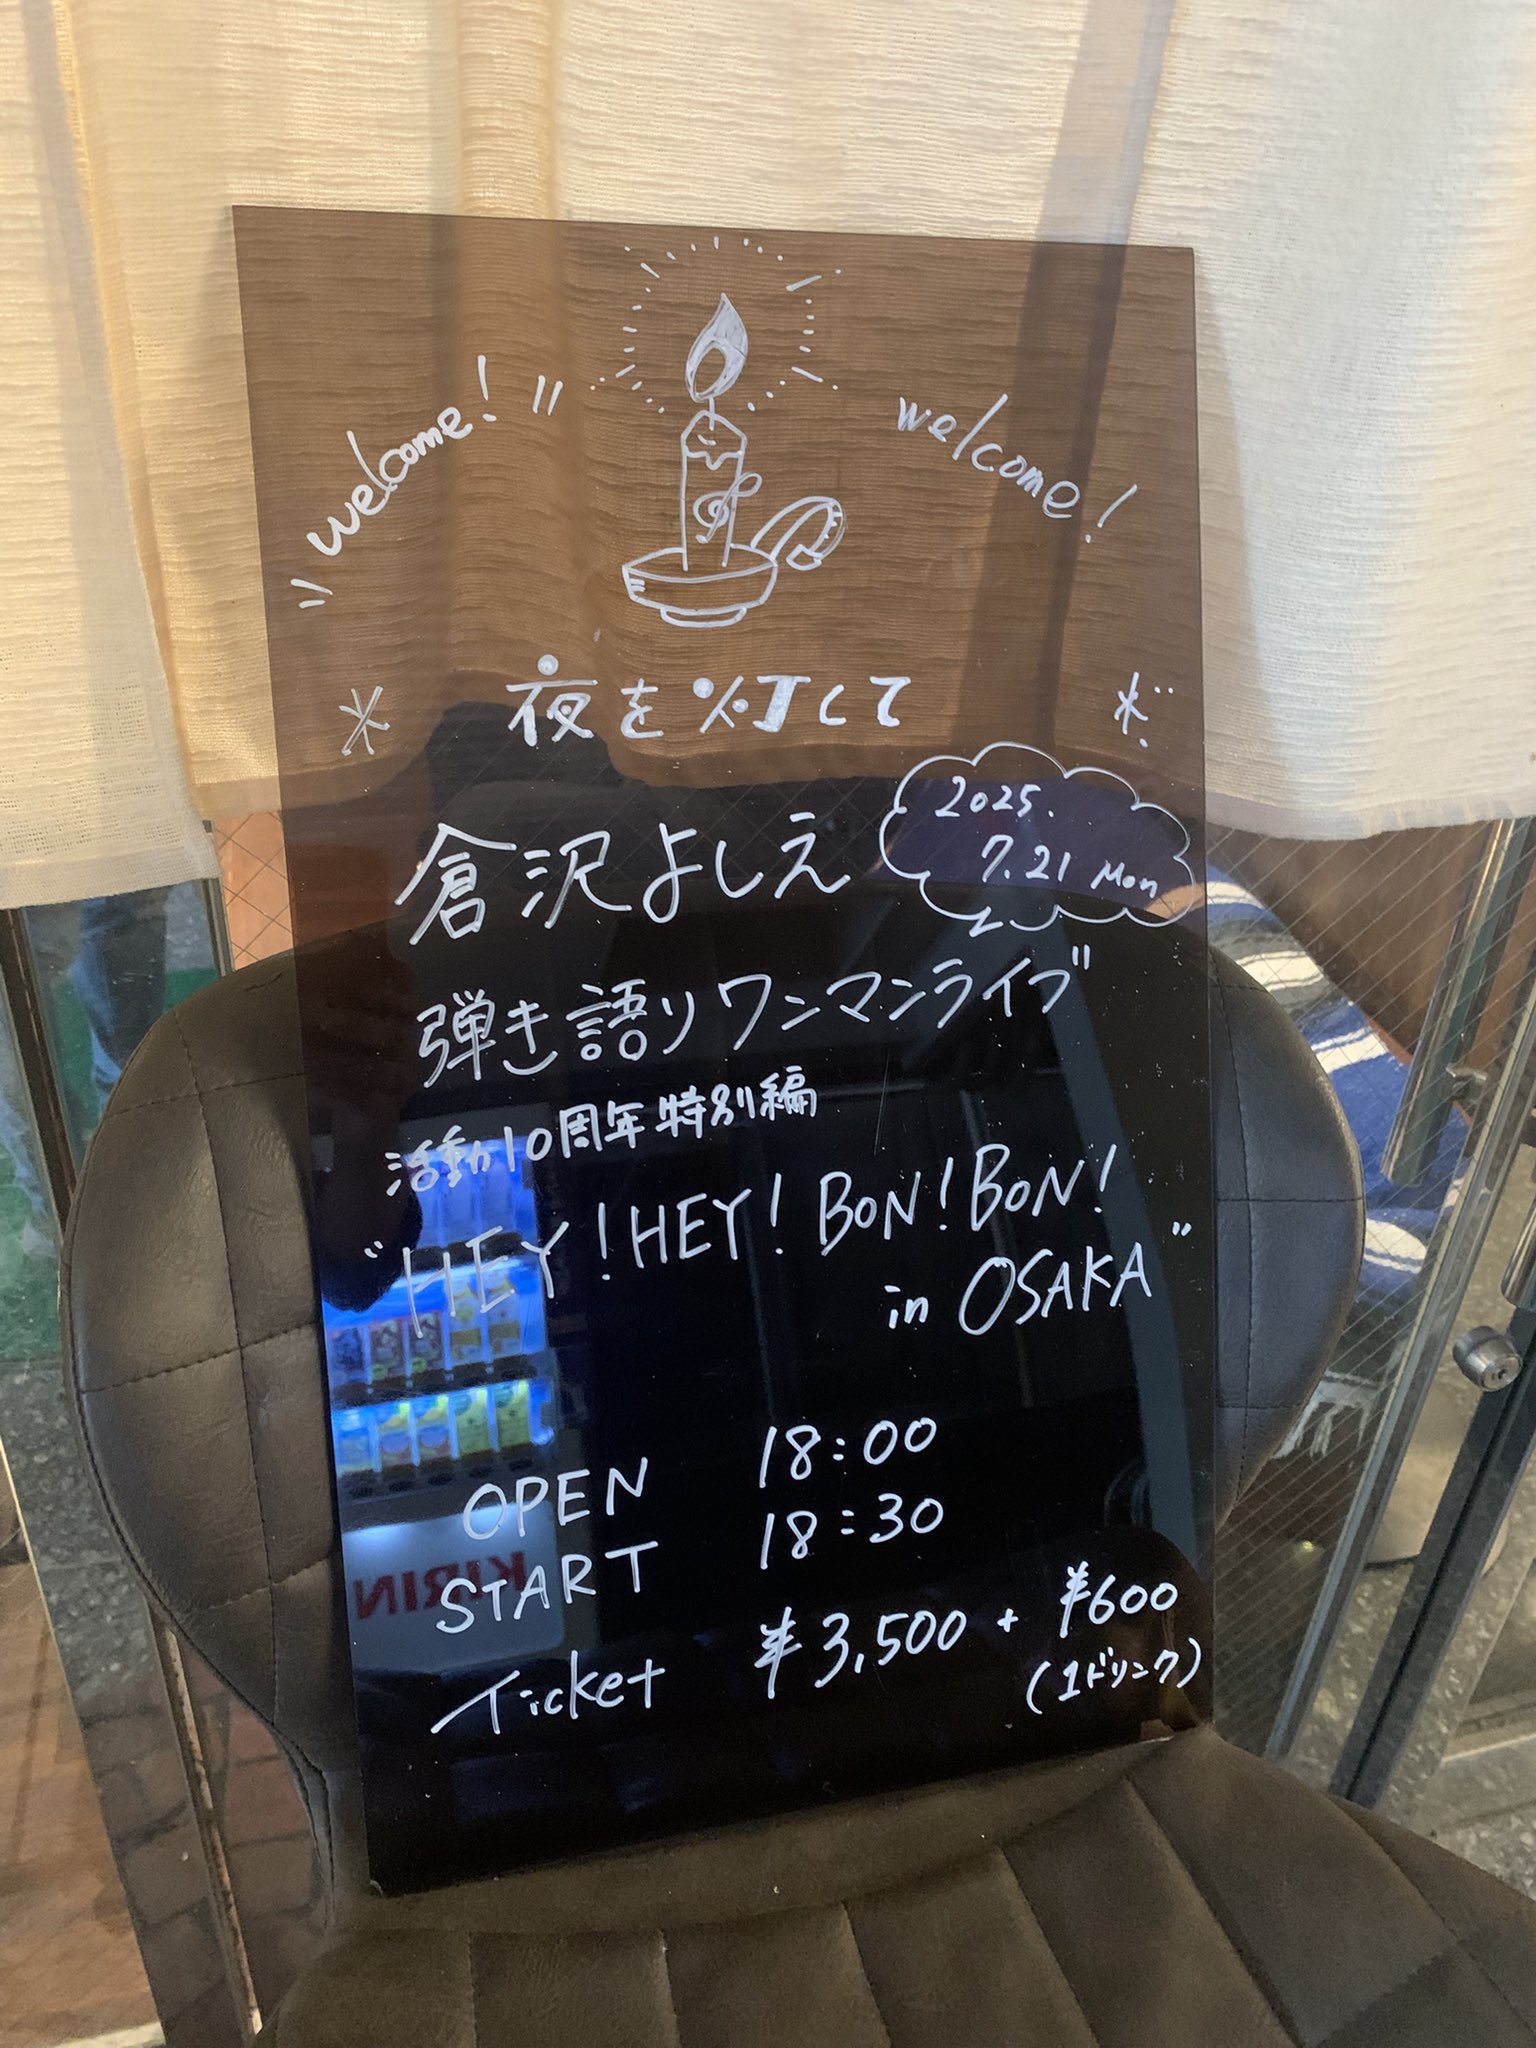 welcome!
welcome!
夜を灯して
2025.
7.21 Mon
倉沢よしえ
弾き語りワンマンライブ
活動10周年特別編
"HEY!HEY!BON!BON!
in OSAKA"
OPEN 18:00
START 18:30
Ticket ¥3,500 + ¥600
(1ドリンク)
KIRIN